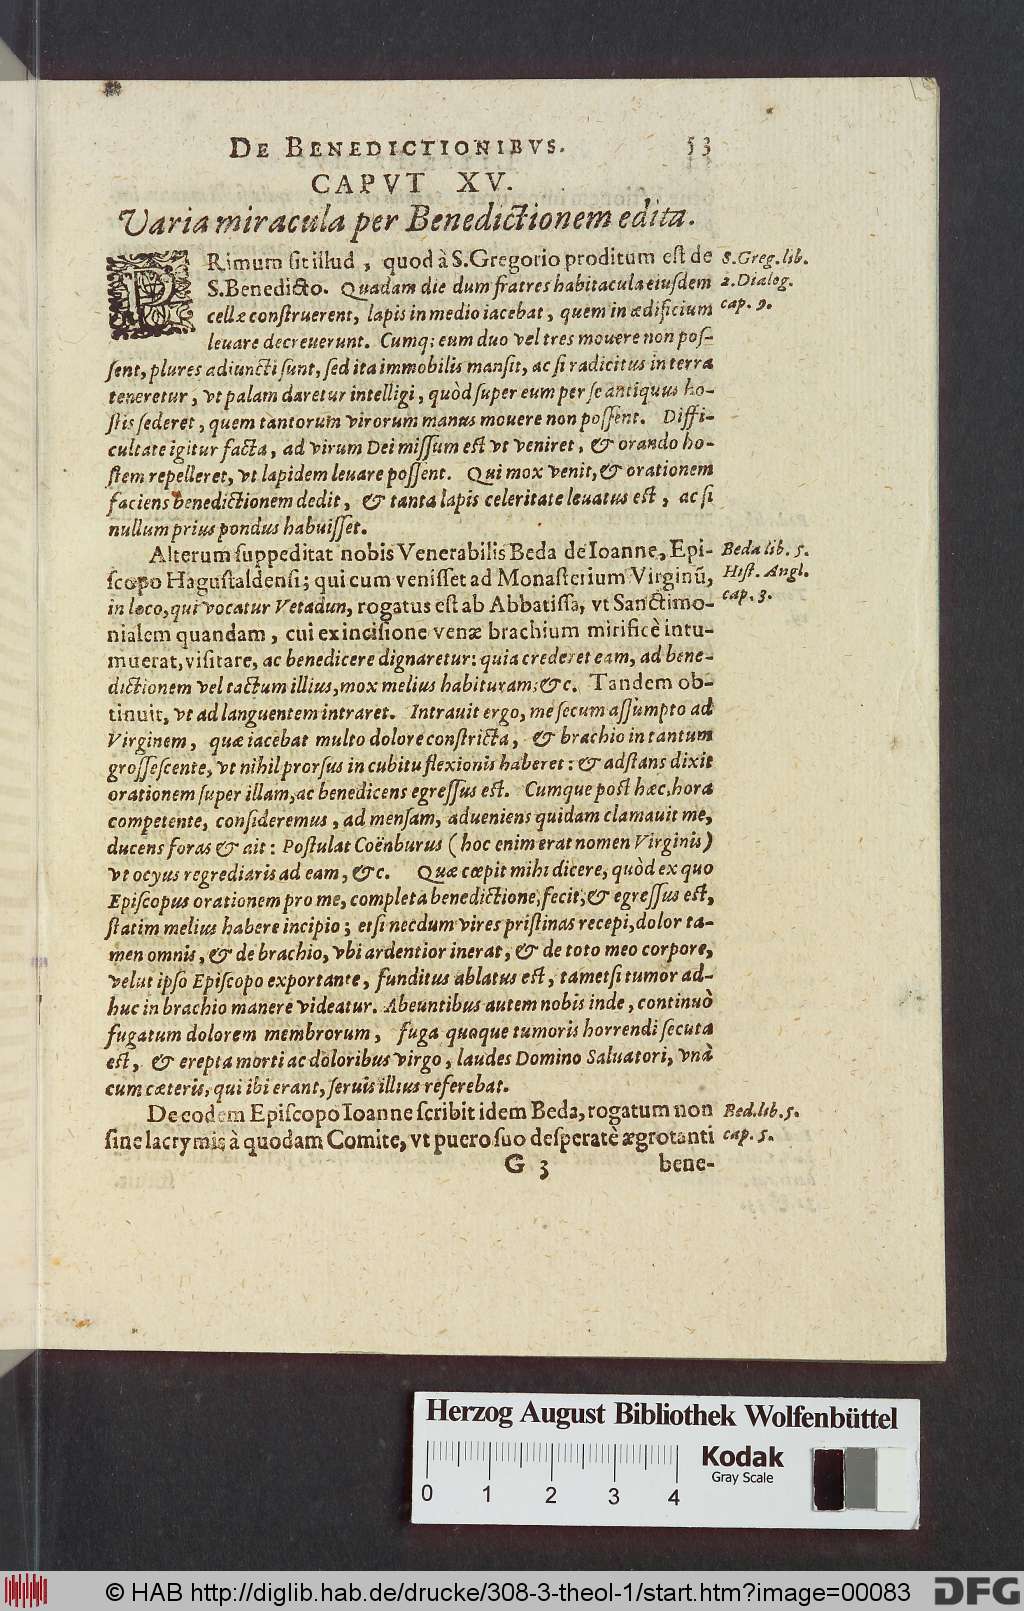 DE BENEDICTIONIBVS. 53
CAPVT XV.
Varia miracula per Benedictionem edita.
PRimum sit illud, quod à S. Gregorio proditum est de
S. Benedicto. Quadam die dum fratres habitacula eiusdem
cellæ construerent, lapis in medio iacebat, quem in ædificium
leuare decreuerunt. Cumq; eum duo vel tres mouere non pos-
sent, plures adiuncti sunt, sed ita immobilis mansit, ac si radicitus in terra
teneretur, vt palam daretur intelligi, quòd super eum per se antiquus ho-
stis sederet, quem tantorum virorum manus mouere non possent. Diffi-
cultate igitur facta, ad virum Dei missum est vt veniret, & orando ho-
stem repelleret, vt lapidem leuare possent. Qui mox venit, & orationem
faciens benedictionem dedit, & tanta lapis celeritate leuatus est, ac si
nullum prius pondus habuisset.
S. Greg. lib.
2. Dialog.
cap. 9.
Alterum suppeditat nobis Venerabilis Beda de Ioanne, Epi-
scopo Hagustaldensi; qui cum venisset ad Monasterium Virginũ,
in loco, qui vocatur Vetadun, rogatus est ab Abbatissa, vt Sanctimo-
nialem quandam, cui ex incisione venæ brachium mirificè intu-
muerat, visitare, ac benedicere dignaretur: quia crederet eam, ad bene-
dictionem vel tactum illius, mox melius habituram; &c. Tandem ob-
tinuit, vt ad languentem intraret. Intrauit ergo, me secum assumpto ad
Virginem, quæ iacebat multo dolore constricta, & brachio in tantum
grossescente, vt nihil prorsus in cubitu flexionis haberet: & adstans dixit
orationem super illam, ac benedicens egressus est. Cumque post hæc, hora
competente, consideremus, ad mensam, adueniens quidam clamauit me,
ducens foras & ait: Postulat Coënburus (hoc enim erat nomen Virginis)
vt ocyus regrediaris ad eam, &c. Quæ cœpit mihi dicere, quòd ex quo
Episcopus orationem pro me, completa benedictione, fecit, & egressus est,
statim melius habere incipio; etsi necdum vires pristinas recepi, dolor ta-
men omnis, & de brachio, vbi ardentior inerat, & de toto meo corpore,
velut ipso Episcopo exportante, funditus ablatus est, tametsi tumor ad-
huc in brachio manere videatur. Abeuntibus autem nobis inde, continuò
fugatum dolorem membrorum, fuga quoque tumoris horrendi secuta
est, & erepta morti ac doloribus virgo, laudes Domino Saluatori, vnà
cum cæteris, qui ibi erant, seruis illius referebat.
Beda lib. 5.
Hist. Angl.
cap. 3.
De eodem Episcopo Ioanne scribit idem Beda, rogatum non
sine lacrymis à quodam Comite, vt puero suo desperatè ægrotanti
Bed. lib. 5.
cap. 5.
G 3 bene-
Herzog August Bibliothek Wolfenbüttel
Kodak
Gray Scale
0 1 2 3 4
© HAB http://diglib.hab.de/drucke/308-3-theol-1/start.htm?image=00083
DFG